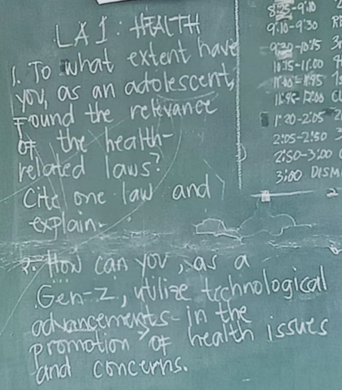 LA 1: HEALTH
1. To what extent have
you, as an adolescent,
Found the relevance
of the health-
related laws?
Cite one law and
explain.
2. How can you, as a
Gen-Z, utilize technological
advancements in the
promotion of health issues
and concerns.
9:10-9:30
11:00
1:20-2:05
2:05-2:50
2:50-3:00
3:00 DISM